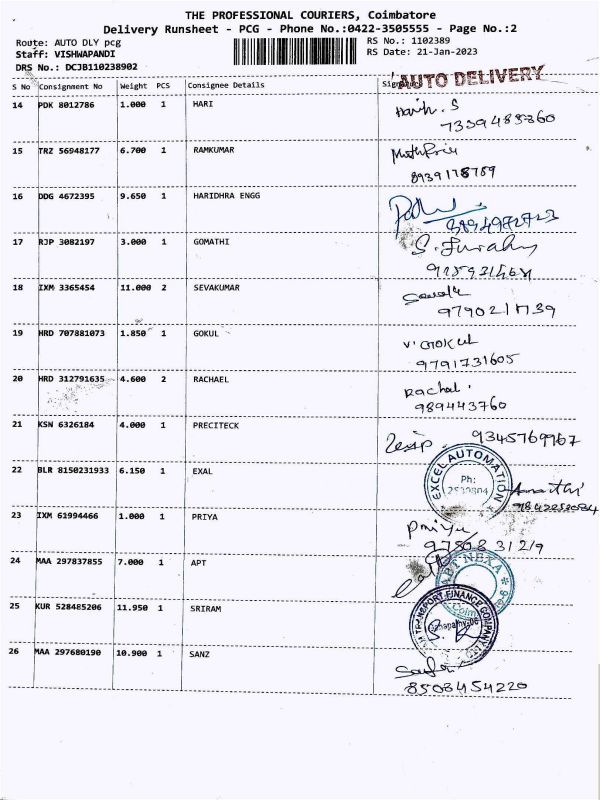 THE PROFESSIONAL COURIERS, Coimbatore
Delivery Runsheet - PCG - Phone No.:0422-3505555 - Page No.:2
Route: AUTO DLY pcg RS No.: 1102389
Staff: VISHWAPANDI RS Date: 21-Jan-2023
DRS No.: DCJB110238902
AUTO DELIVERY
S No Consignment No Weight PCS Consignee Details
14 PDK 8012786 1.000 1 HARI
7339485360
15 TRZ 56948177 6.700 1 RAMKUMAR
8939178789
16 DDG 4672395 9.650 1 HARIDHRA ENGG
17 RJP 3082197 3.000 1 GOMATHI
18 IXM 3365454 11.000 2 SEVAKUMAR
19 HRD 707881073 1.850 1 GOKUL
V. GOKUL
9791731605
20 HRD 312791635 4.600 2 RACHAEL
Rachal.
989443760
21 KSN 6326184 4.000 1 PRECITECK
9345769967
22 BLR 8150231933 6.150 1 EXAL
EXCEL AUTOMATION
Ph:
23 IXM 61994466 1.000 1 PRIYA
Priya
24 MAA 297837855 7.000 1 APT
NEXA
25 KUR 528485206 11.950 1 SRIRAM
TRANSPORT FINANCE COMPANY LTD
26 MAA 297680190 10.900 1 SANZ
8508454220